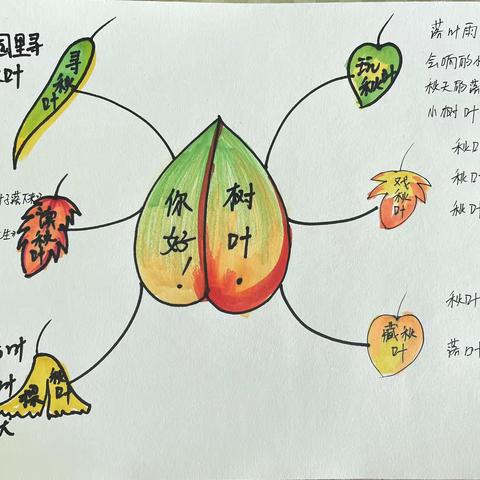 你好！
树叶
园里寻
叶
寻秋叶
读秋叶
探秋叶
叶
玩秋叶
落叶雨
会响的
秋天的落
小树叶
戏秋叶
秋叶
秋叶
秋叶
藏秋叶
秋叶
落叶